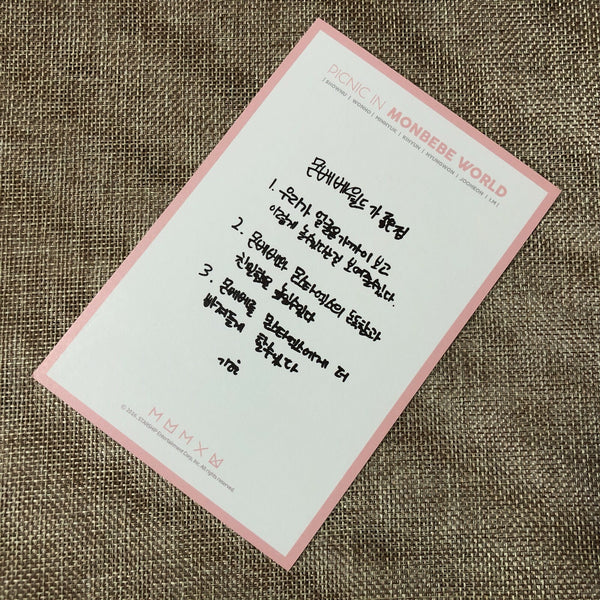 PICNIC IN MONBEBE WORLD
| SHOWNU | WONHO | MINHYUK | KIHYUN | HYUNGWON | JOOHEON | I.M |
몬베베월드가 좋은점
1. 우리가 얼굴을 가까이 보고
이렇게 놀 수 있다는걸 보여줄수있다.
2. 몬베베와 몬스타엑스의 또한과
친밀함을 높일수있다
3. 몬베베를 몬스타엑스에게 더
빠져들게 할수있다
기현
© 2016. STARSHIP Entertainment Corp, Inc. All rights reserved.